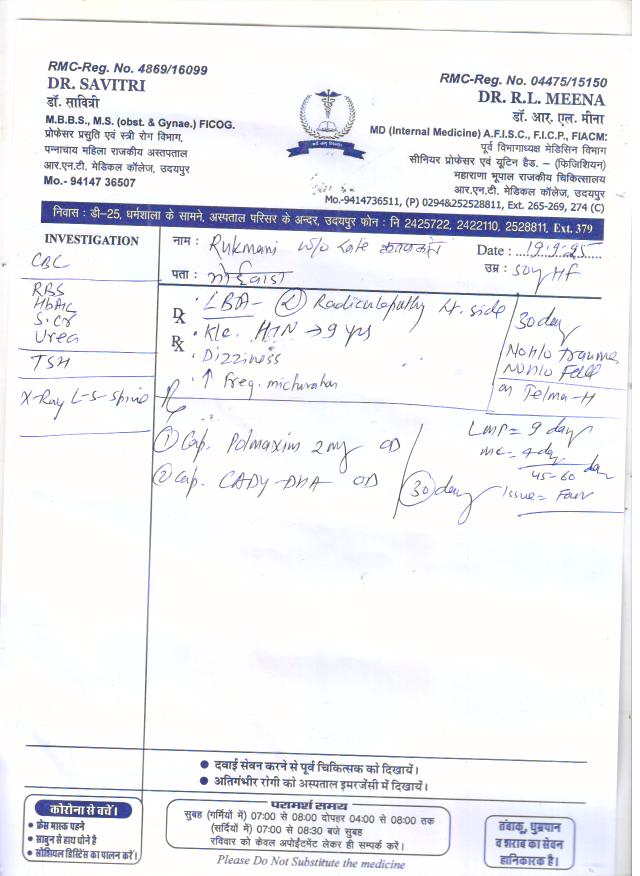 RMC-Reg. No. 4869/16099
DR. SAVITRI
डॉ. सावित्री
M.B.B.S., M.S. (obst. & Gynae.) FICOG.
प्रोफेसर प्रसुति एवं स्त्री रोग विभाग,
पन्नाचाय महिला राजकीय अस्तपताल
आर.एन.टी. मेडिकल कॉलेज, उदयपुर
Mo.- 94147 36507
RMC-Reg. No. 04475/15150
DR. R.L. MEENA
डॉ. आर. एल. मीना
MD (Internal Medicine) A.F.I.S.C., F.I.C.P., FIACM:
पूर्व विभागाध्यक्ष मेडिसिन विभाग
सीनियर प्रोफेसर एवं यूटिन हैड. – (फिजिशियन)
महाराणा भूपाल राजकीय चिकित्सालय
आर.एन.टी. मेडिकल कॉलेज, उदयपुर
Mo.-9414736511, (P) 0294&252528811, Ext. 265-269, 274 (C)
निवास : डी-25, धर्मशाला के सामने, अस्पताल परिसर के अन्दर, उदयपुर फोन : नि 2425722, 2422110, 2528811, Ext. 379
INVESTIGATION
CBC
RBS
HbA1C
S. Cr
Urea
TSH
X-Ray L-S-Spine
नाम : Rukmani w/o Late
Date : 19.9.25
पता :
उम्र : 50y Hf
Dx
LBA - Radiculopathy Lt. side
Rx
K/c. HTN → 9 yrs
Dizziness
↑ Freq. micturation
30 day
No h/o trauma
No h/o Fall
on Telma-H
Rx
① Cap. Polmaxim 2mg OD
② Cap. CADY-DHA OD
30 day
LMP = 9 day
MC = 4 day
45-60 day
Issue = Four
● दवाई सेवन करने से पूर्व चिकित्सक को दिखायें।
● अतिगंभीर रोगी को अस्पताल इमरजेंसी में दिखायें।
कोरोना से बचें।
● फ्रेस मास्क पहने
● साबुन से हाथ धोने है
● सोशियल डिस्टिेंस का पालन करें।
परामर्श समय
सुबह (गर्मियों में) 07:00 से 08:00 दोपहर 04:00 से 08:00 तक
(सर्दियों में) 07:00 से 08:30 बजे सुबह
रविवार को केवल अपोईंटमेंट लेकर ही सम्पर्क करें।
Please Do Not Substitute the medicine
तंबाकू, धुम्रपान
व शराब का सेवन
हानिकारक है।